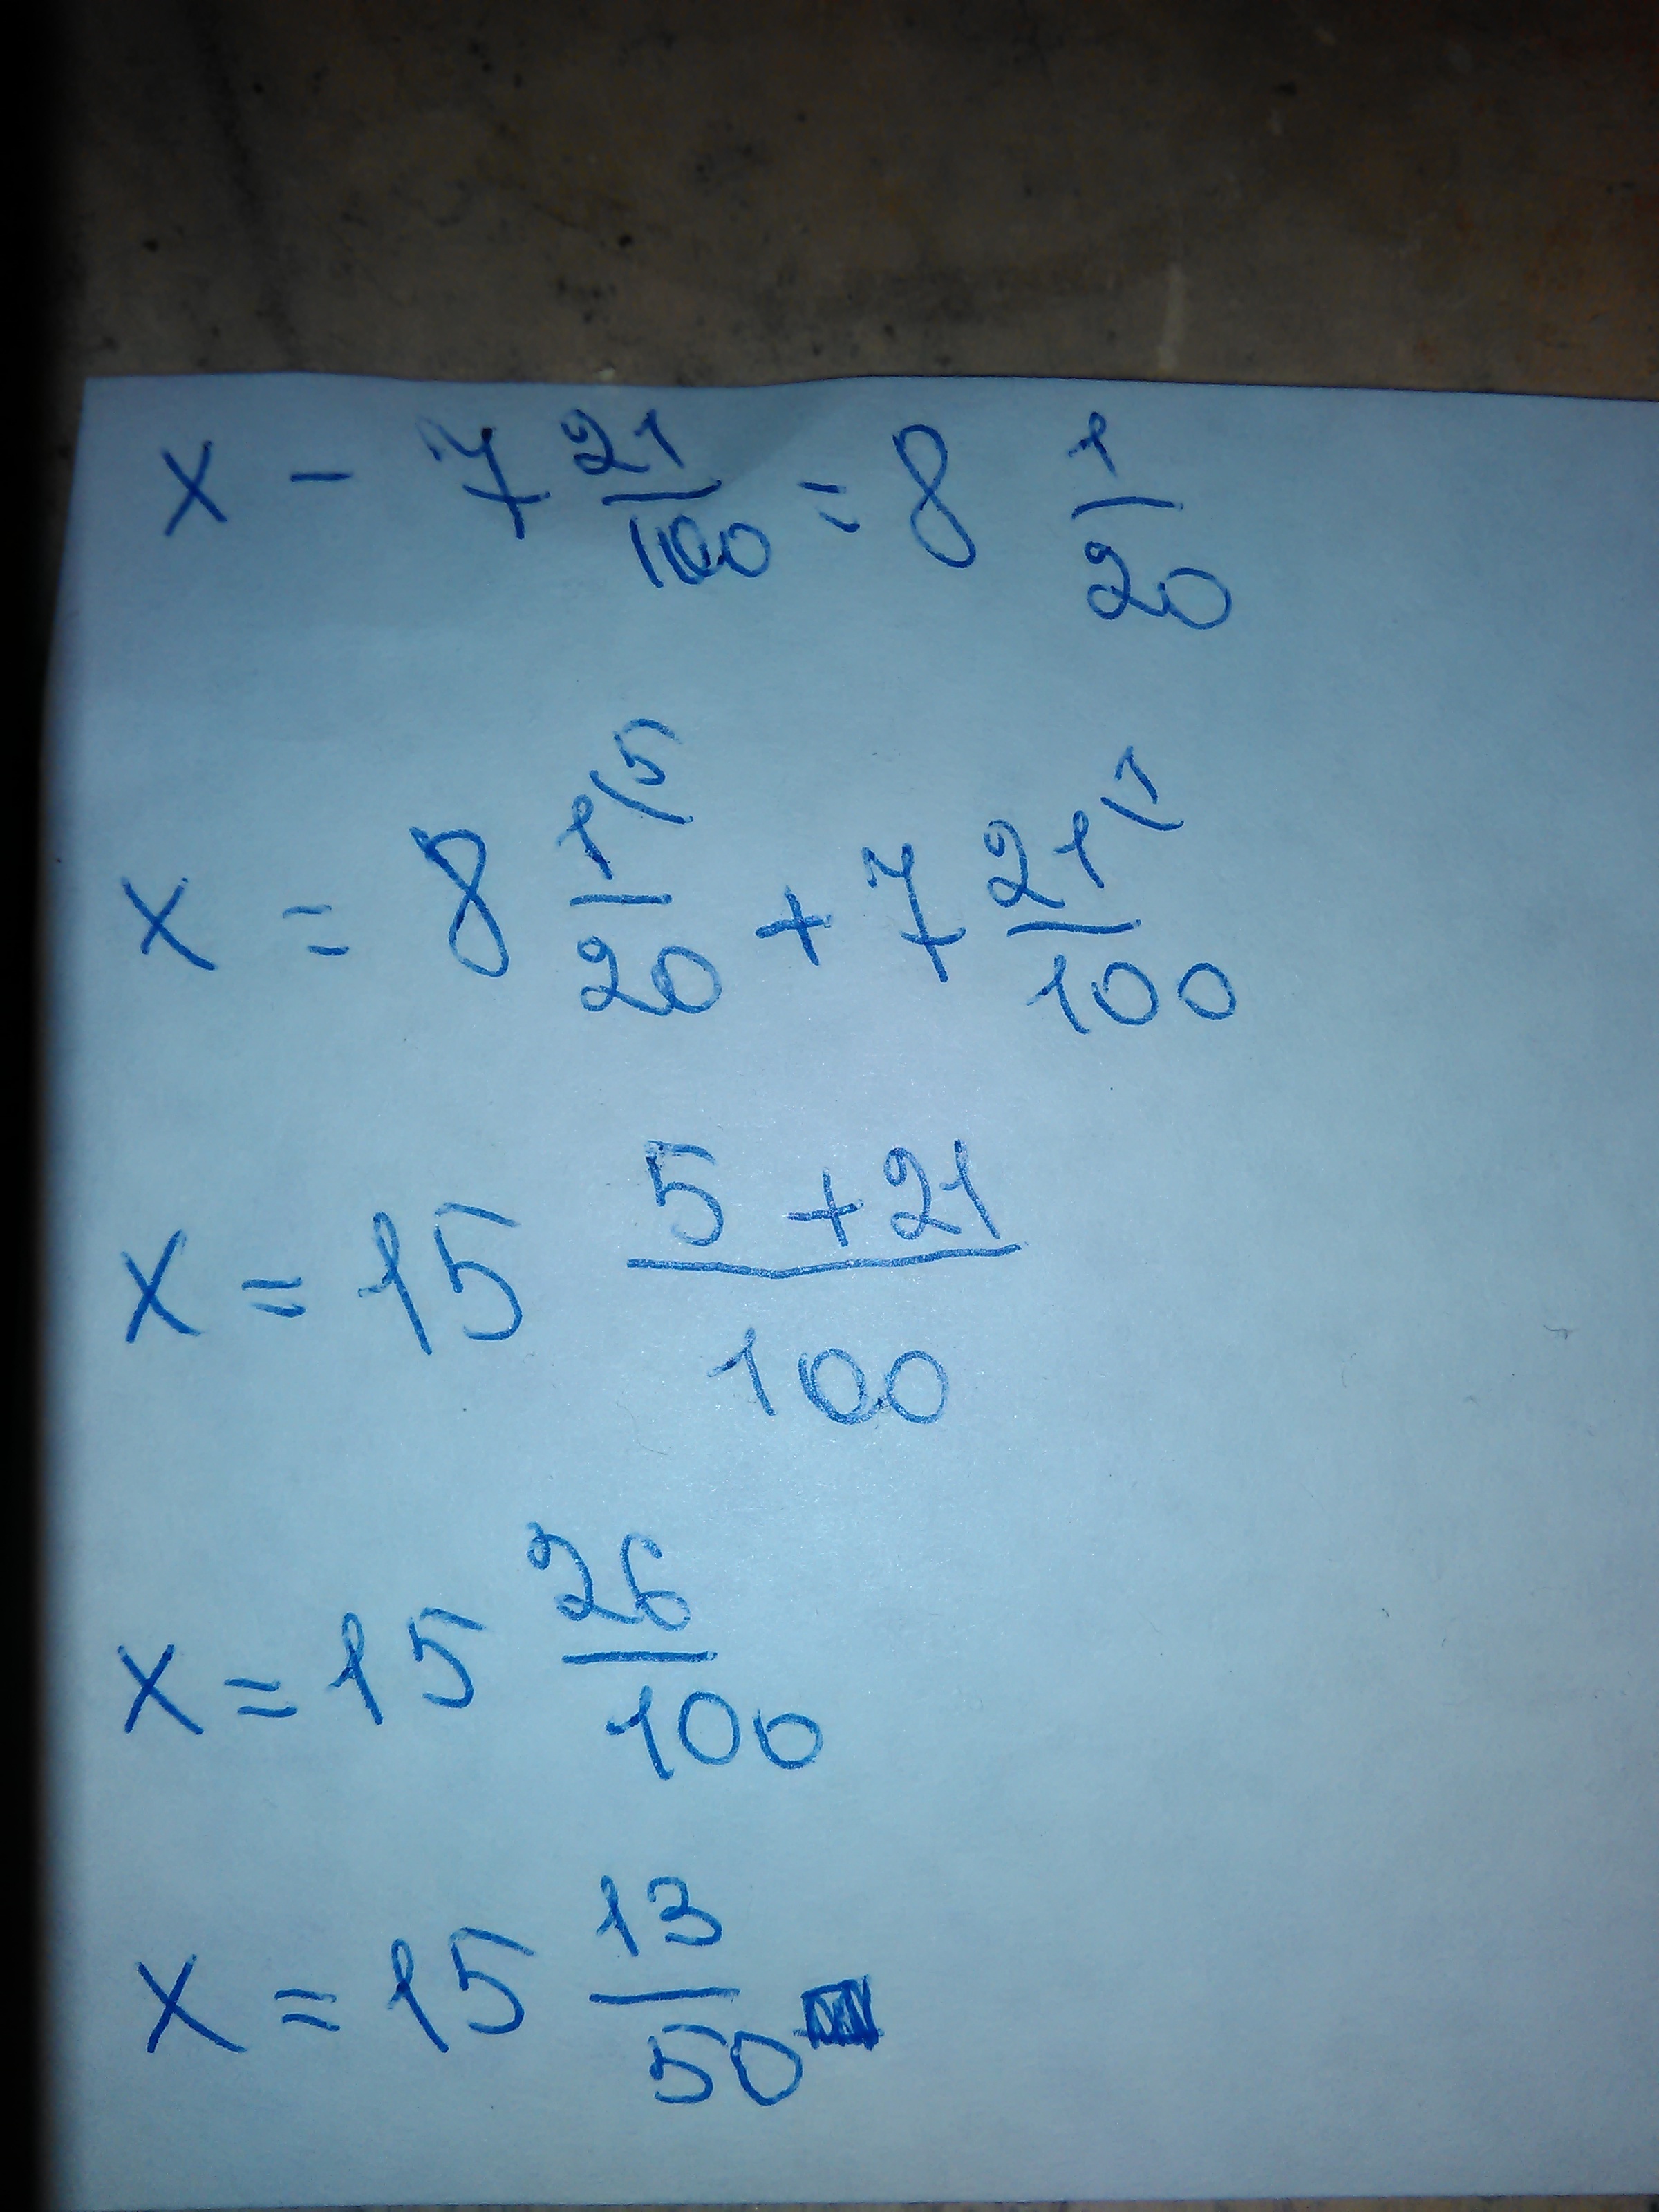 x - 7 21/100 = 8 1/20
x = 8 1\5/20 + 7 21\1/100
x = 15 5+21/100
x = 15 26/100
x = 15 13/50